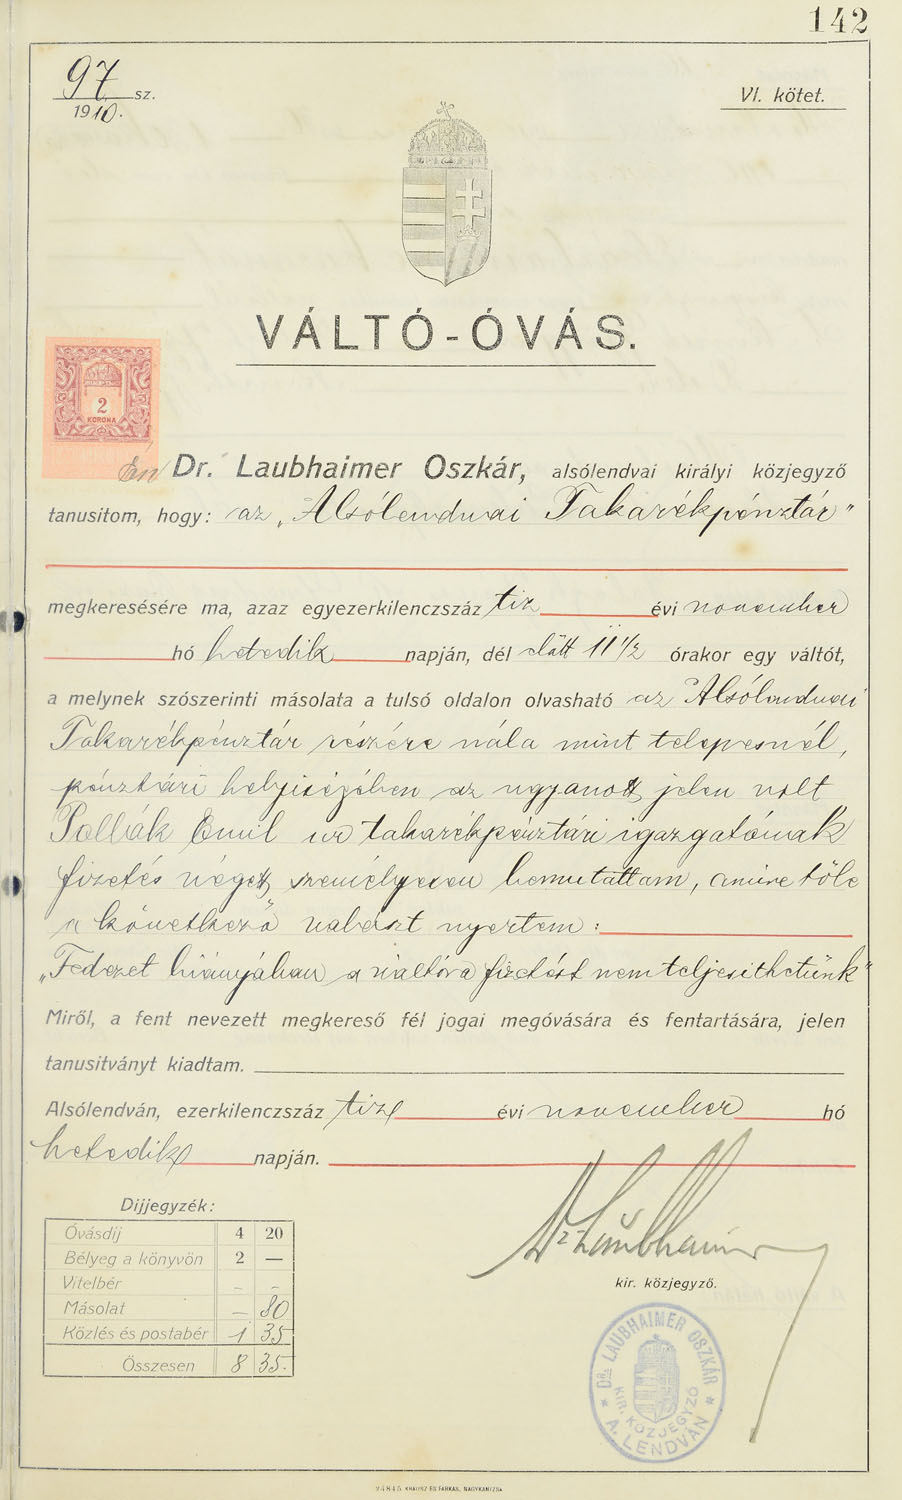 142
97 sz.
1910.
VI. kötet.
VÁLTÓ-ÓVÁS.
2
KORONA
Én Dr. Laubhaimer Oszkár, alsólendvai királyi közjegyző
tanusitom, hogy: az „Alsólendvai Takarékpénztár"
megkeresésére ma, azaz egyezerkilenczszáz tiz évi november
hó hetedik napján, dél előtt 11 1/2 órakor egy váltót,
a melynek szószerinti másolata a tulsó oldalon olvasható az Alsólendvai
Takarékpénztár részére nála mint telepesnél,
pénztári helyiségében az ugyanott jelen volt
Pollák Emil ur takarékpénztári igazgatónak
fizetés végett személyesen bemutattam, amire tőle
a következő választ nyertem:
„Fedezet hiányában a váltóra fizetést nem teljesithetünk"
Miről, a fent nevezett megkereső fél jogai megóvására és fentartására, jelen
tanusitványt kiadtam.
Alsólendván, ezerkilenczszáz tiz évi november hó
hetedik napján.
Dr Laubhaimer
kir. közjegyző.
Dijjegyzék:
Óvásdij 4 20
Bélyeg a könyvön 2 —
Vitelbér - -
Másolat — 80
Közlés és postabér 1 35
Összesen 8 35.
DR. LAUBHAIMER OSZKÁR
KIR. KÖZJEGYZŐ
* A. LENDVÁN *
24845 KRAUSZ ÉS FARKAS, NAGYKANIZSA